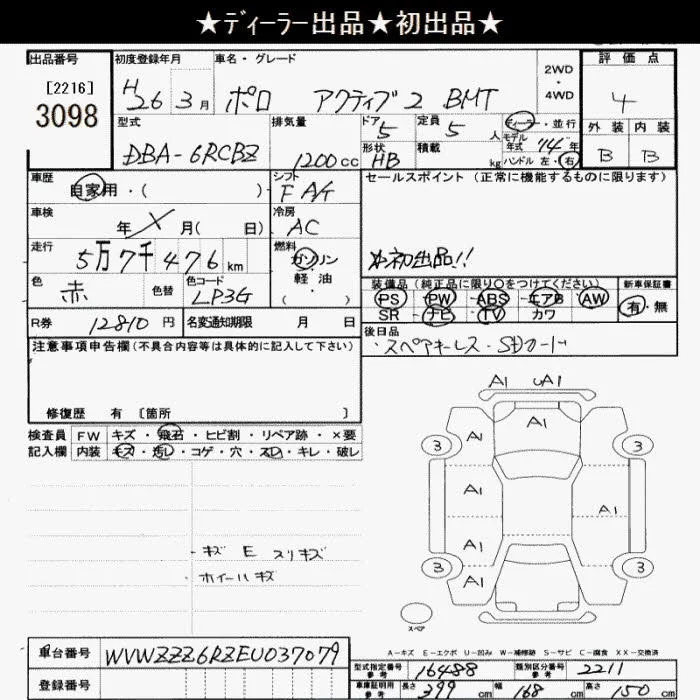 ★ディーラー出品★初出品★
出品番号 初度登録年月 車名・グレード 2WD・4WD 評価点
[2216] 3098 H26 3月 ポロ アクティブ2 BMT 4
型式 排気量 ドア 5 定員 5人 ディーラー・並行 外装 内装
DBA-6RCBZ 1200cc 形状 HB 積載 kg モデル年式 14年 ハンドル 左・右 B B
車歴 自家用・( ) シフト F A/t セールスポイント (正常に機能するものに限ります)
車検 年 月( 日) 冷房 AC
走行 5万7千476km 燃料 ガソリン・軽油・( ) 初出品!!
色 赤 色替 色コード LP3G 装備品(純正品に限り○をつけてください) 新車保証書
PS・PW・ABS・エアB・AW 有・無
SR・ナビ・TV・カワ
R券 12810円 名変通知期限 月 日 後日品
注意事項申告欄(不具合内容等は具体的に記入して下さい) スペアキーレス・SDカード
修復歴 有 〔箇所 〕
検査員 FW キズ・飛石・ヒビ割・リペア跡・×要
記入欄 内装 キズ・汚レ・コゲ・穴・スレ・キレ・破レ
A1 uA1
A1
3 A1 3
A1 A1
A1
3 A1 3
・キズ E スリキズ
・ホイールキズ
スペア
A-キズ E-エクボ U-凹み W-補修跡 S-サビ C-腐食 XX-交換済
車台番号 WVWZZZ6RZEU037079
型式指定番号 参考 16488 類別区分番号 参考 2211
登録番号 車庫証明用 参考 長さ 399cm 幅 168cm 高さ 150cm